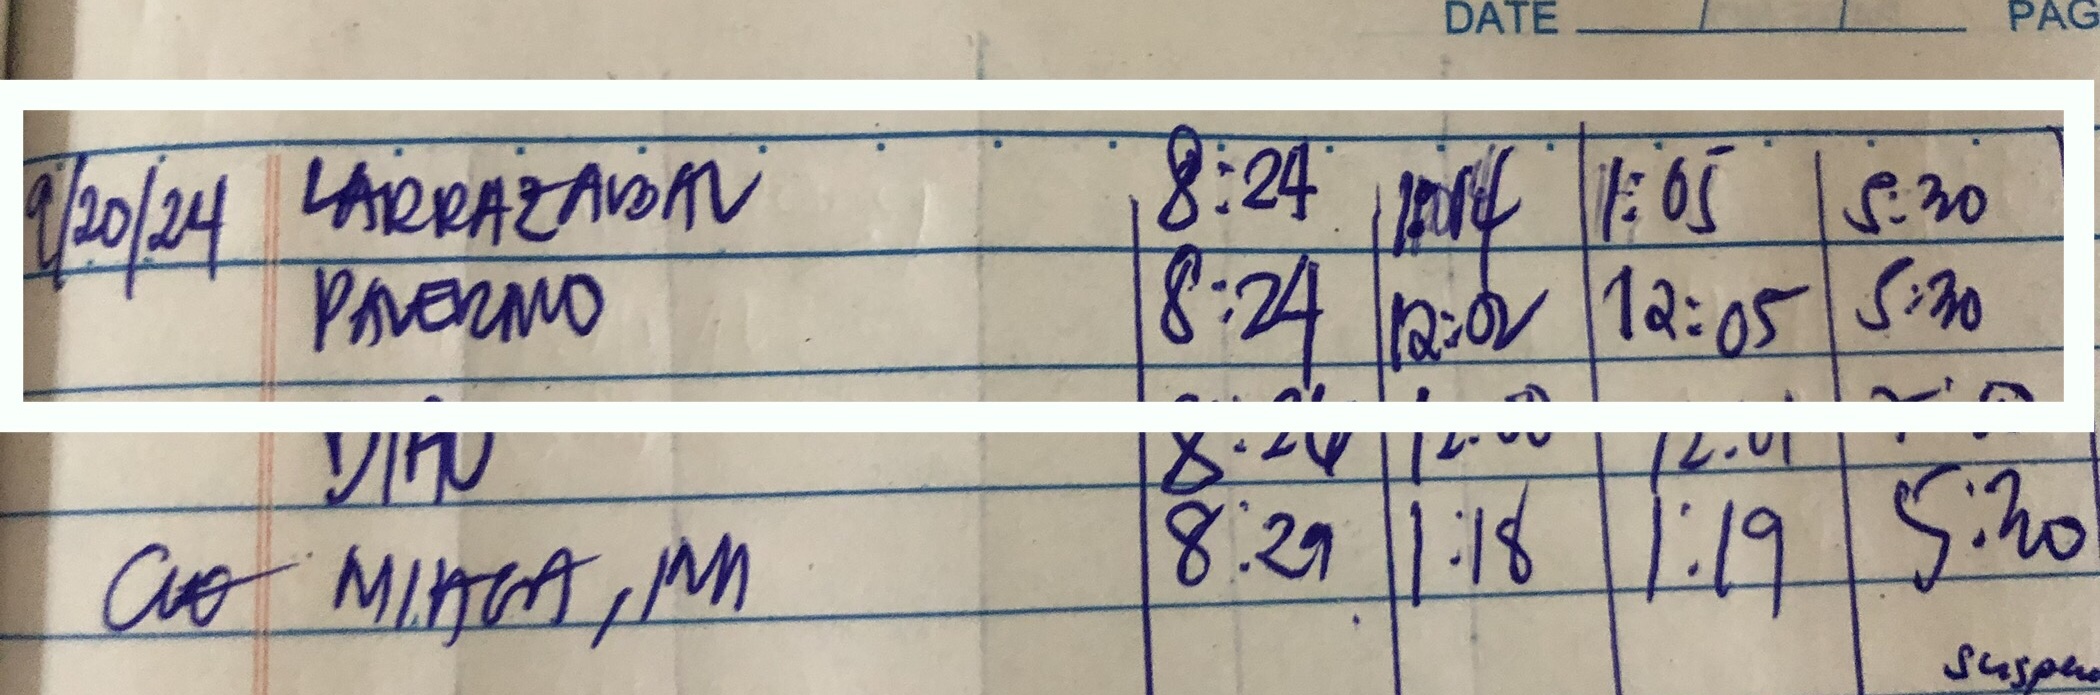 DATE / / PAG
9/20/24 LARRAZABAL 8:24 1:04 1:05 5:30
PALERMO 8:24 12:02 12:05 5:30
8:24 12:00 12:01
MIAGA, MM 8:29 1:18 1:19 5:30